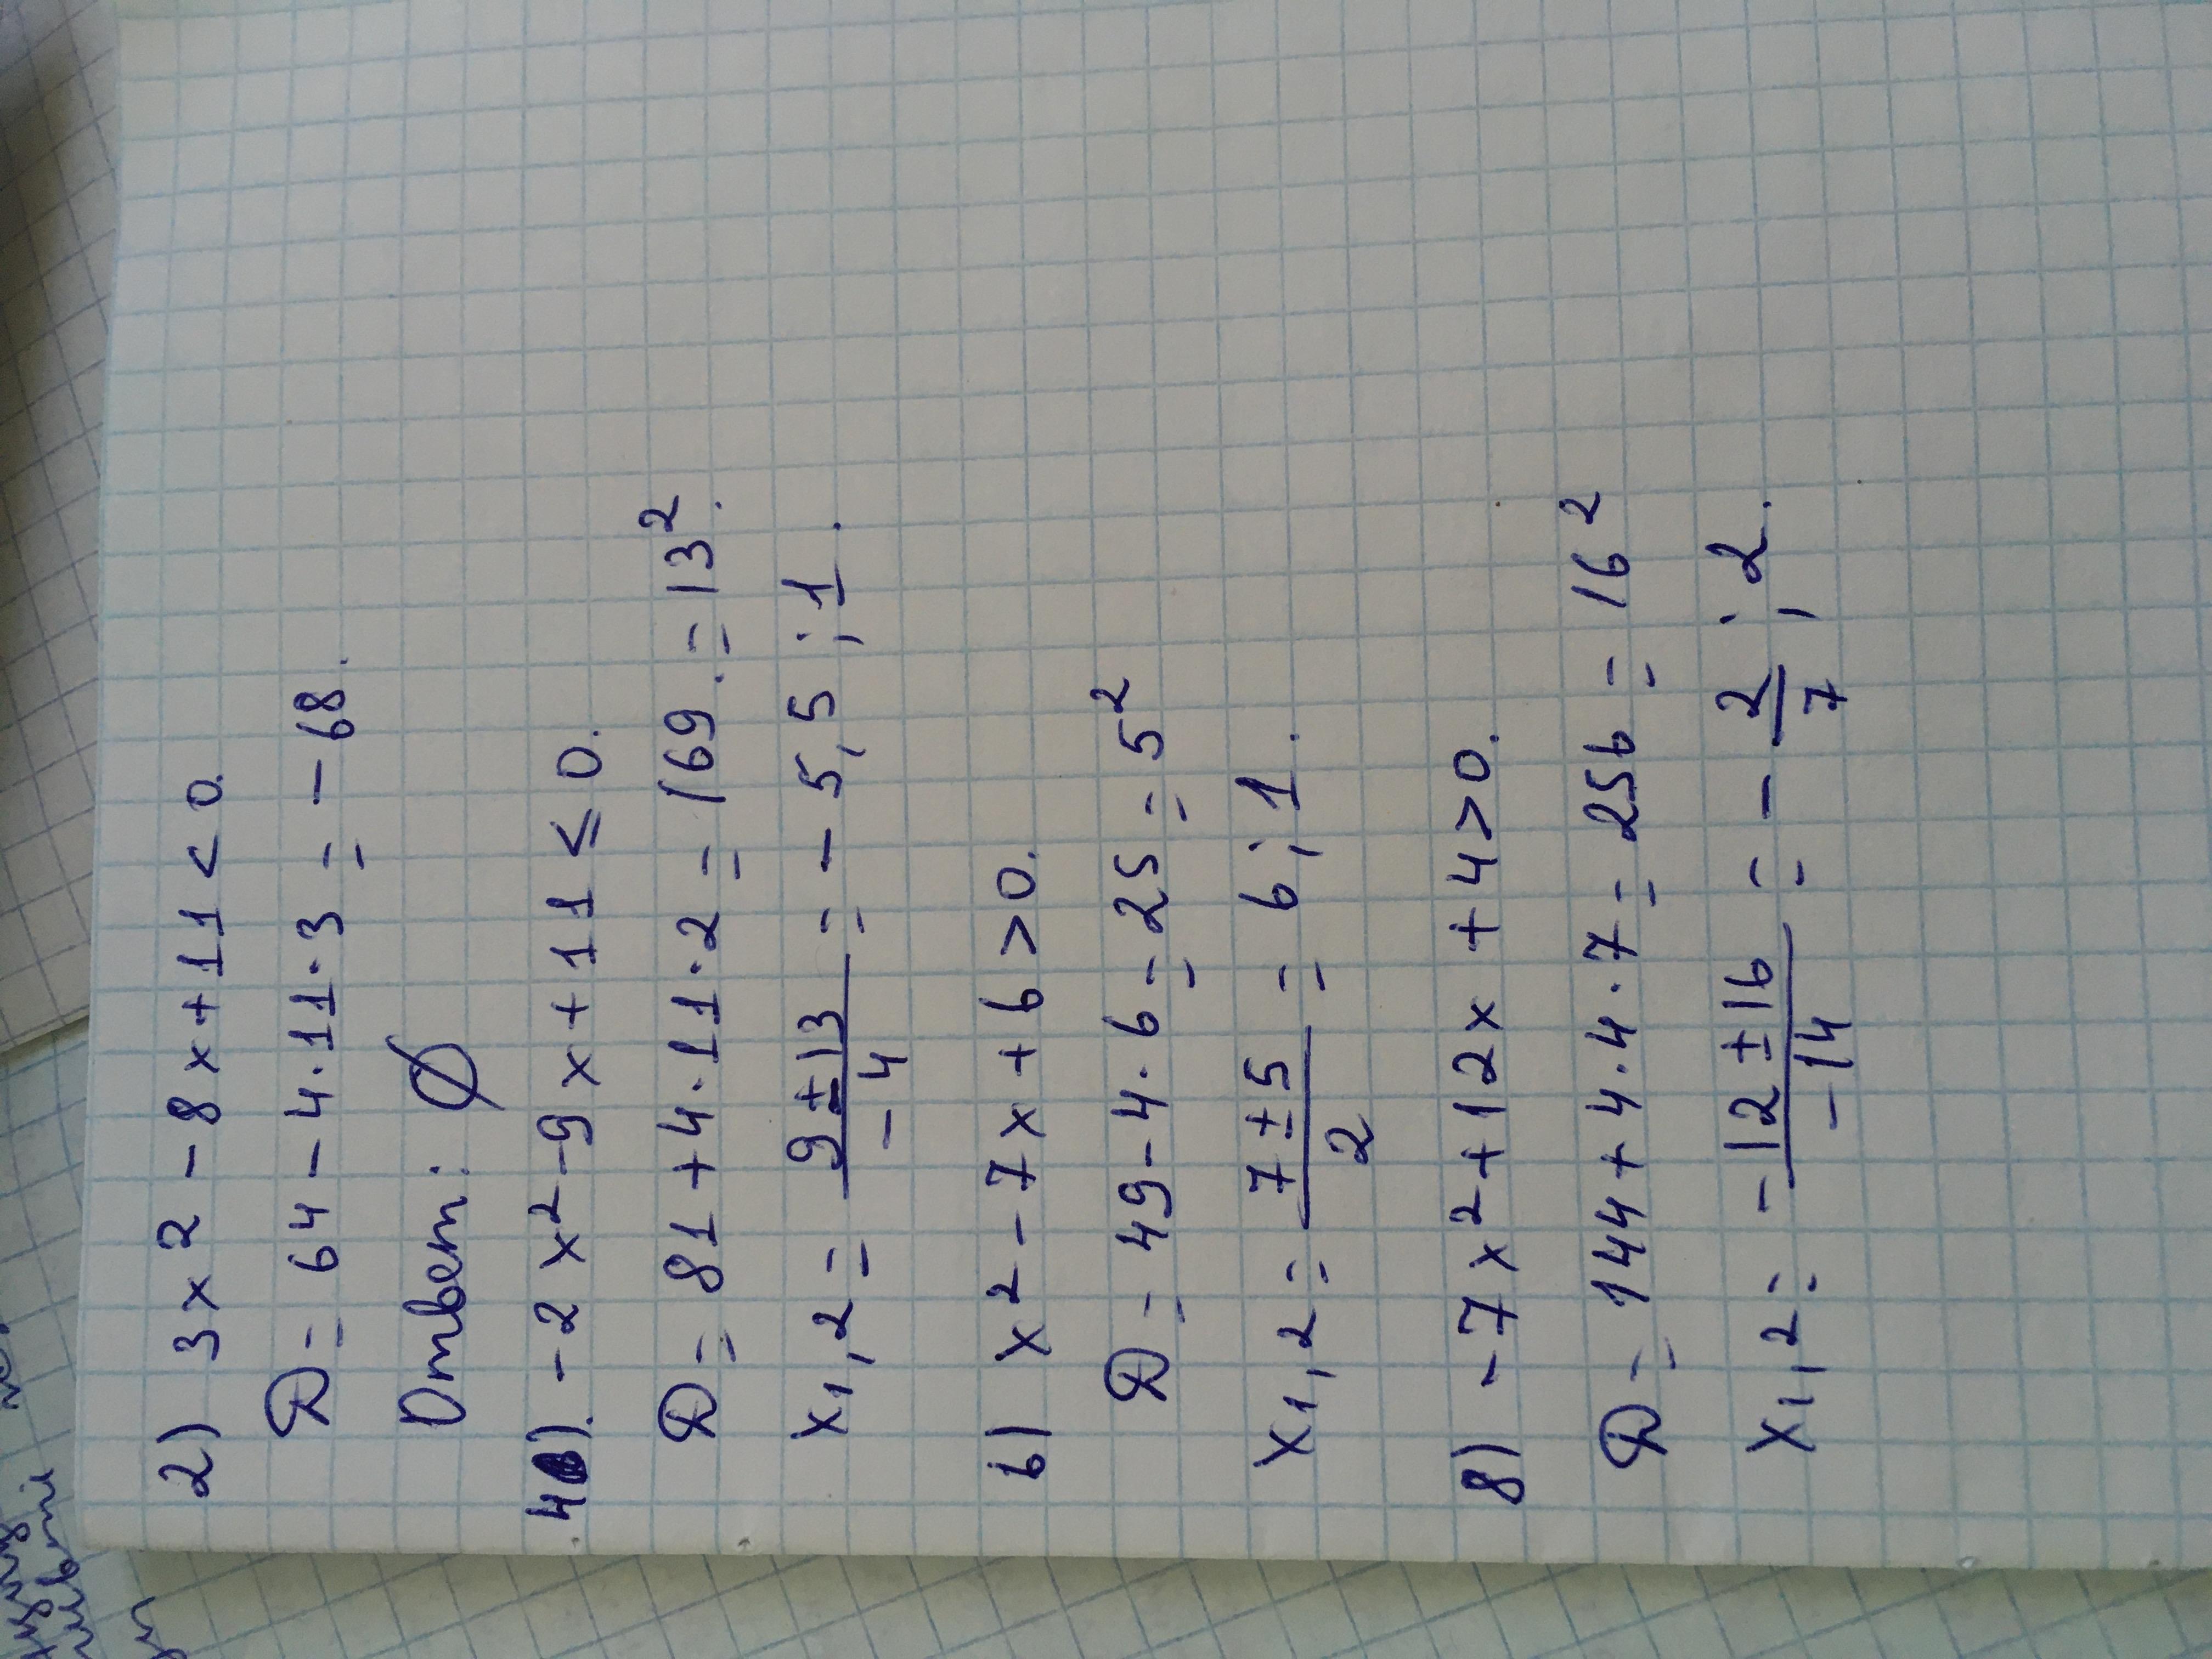 2) 3x2 - 8x + 11 < 0.
D = 64 - 4 · 11 · 3 = - 68.
Ответ: ∅
4). -2x² - 9x + 11 ≤ 0.
D = 81 + 4 · 11 · 2 = 169. = 13².
x1,2 = (9 ± 13)/(-4) = - 5,5 ; 1.
6) x² - 7x + 6 > 0.
D = 49 - 4 · 6 = 25 = 5²
x1,2 = (7 ± 5)/2 = 6 ; 1.
8) -7x² + 12x + 4 > 0.
D = 144 + 4 · 4 · 7 = 256 = 16²
x1,2 = (-12 ± 16)/(-14) = - 2/7 ; 2.